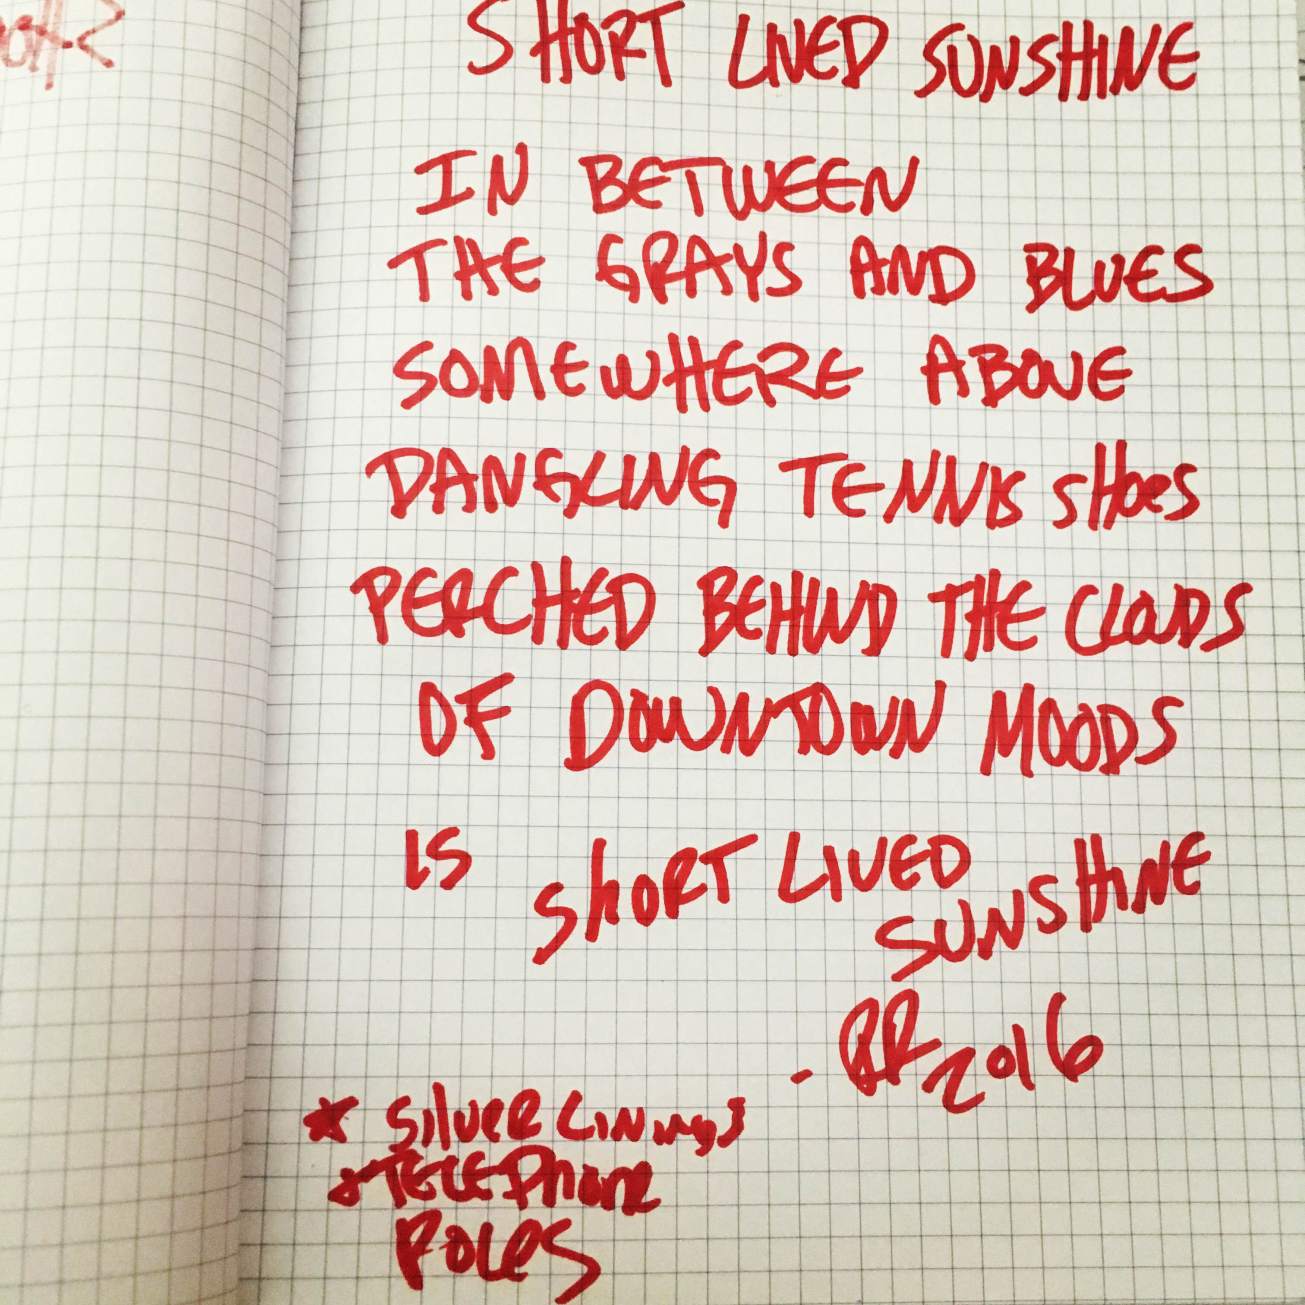 SHORT LIVED SUNSHINE
IN BETWEEN
THE GRAYS AND BLUES
SOMEWHERE ABOVE
DANGLING TENNIS SHOES
PERCHED BEHIND THE CLOUDS
OF DOWNTOWN MOODS
IS SHORT LIVED
SUNSHINE
- RR 2016
★ SILVER LININGS
★ TELEPHONE
POLES